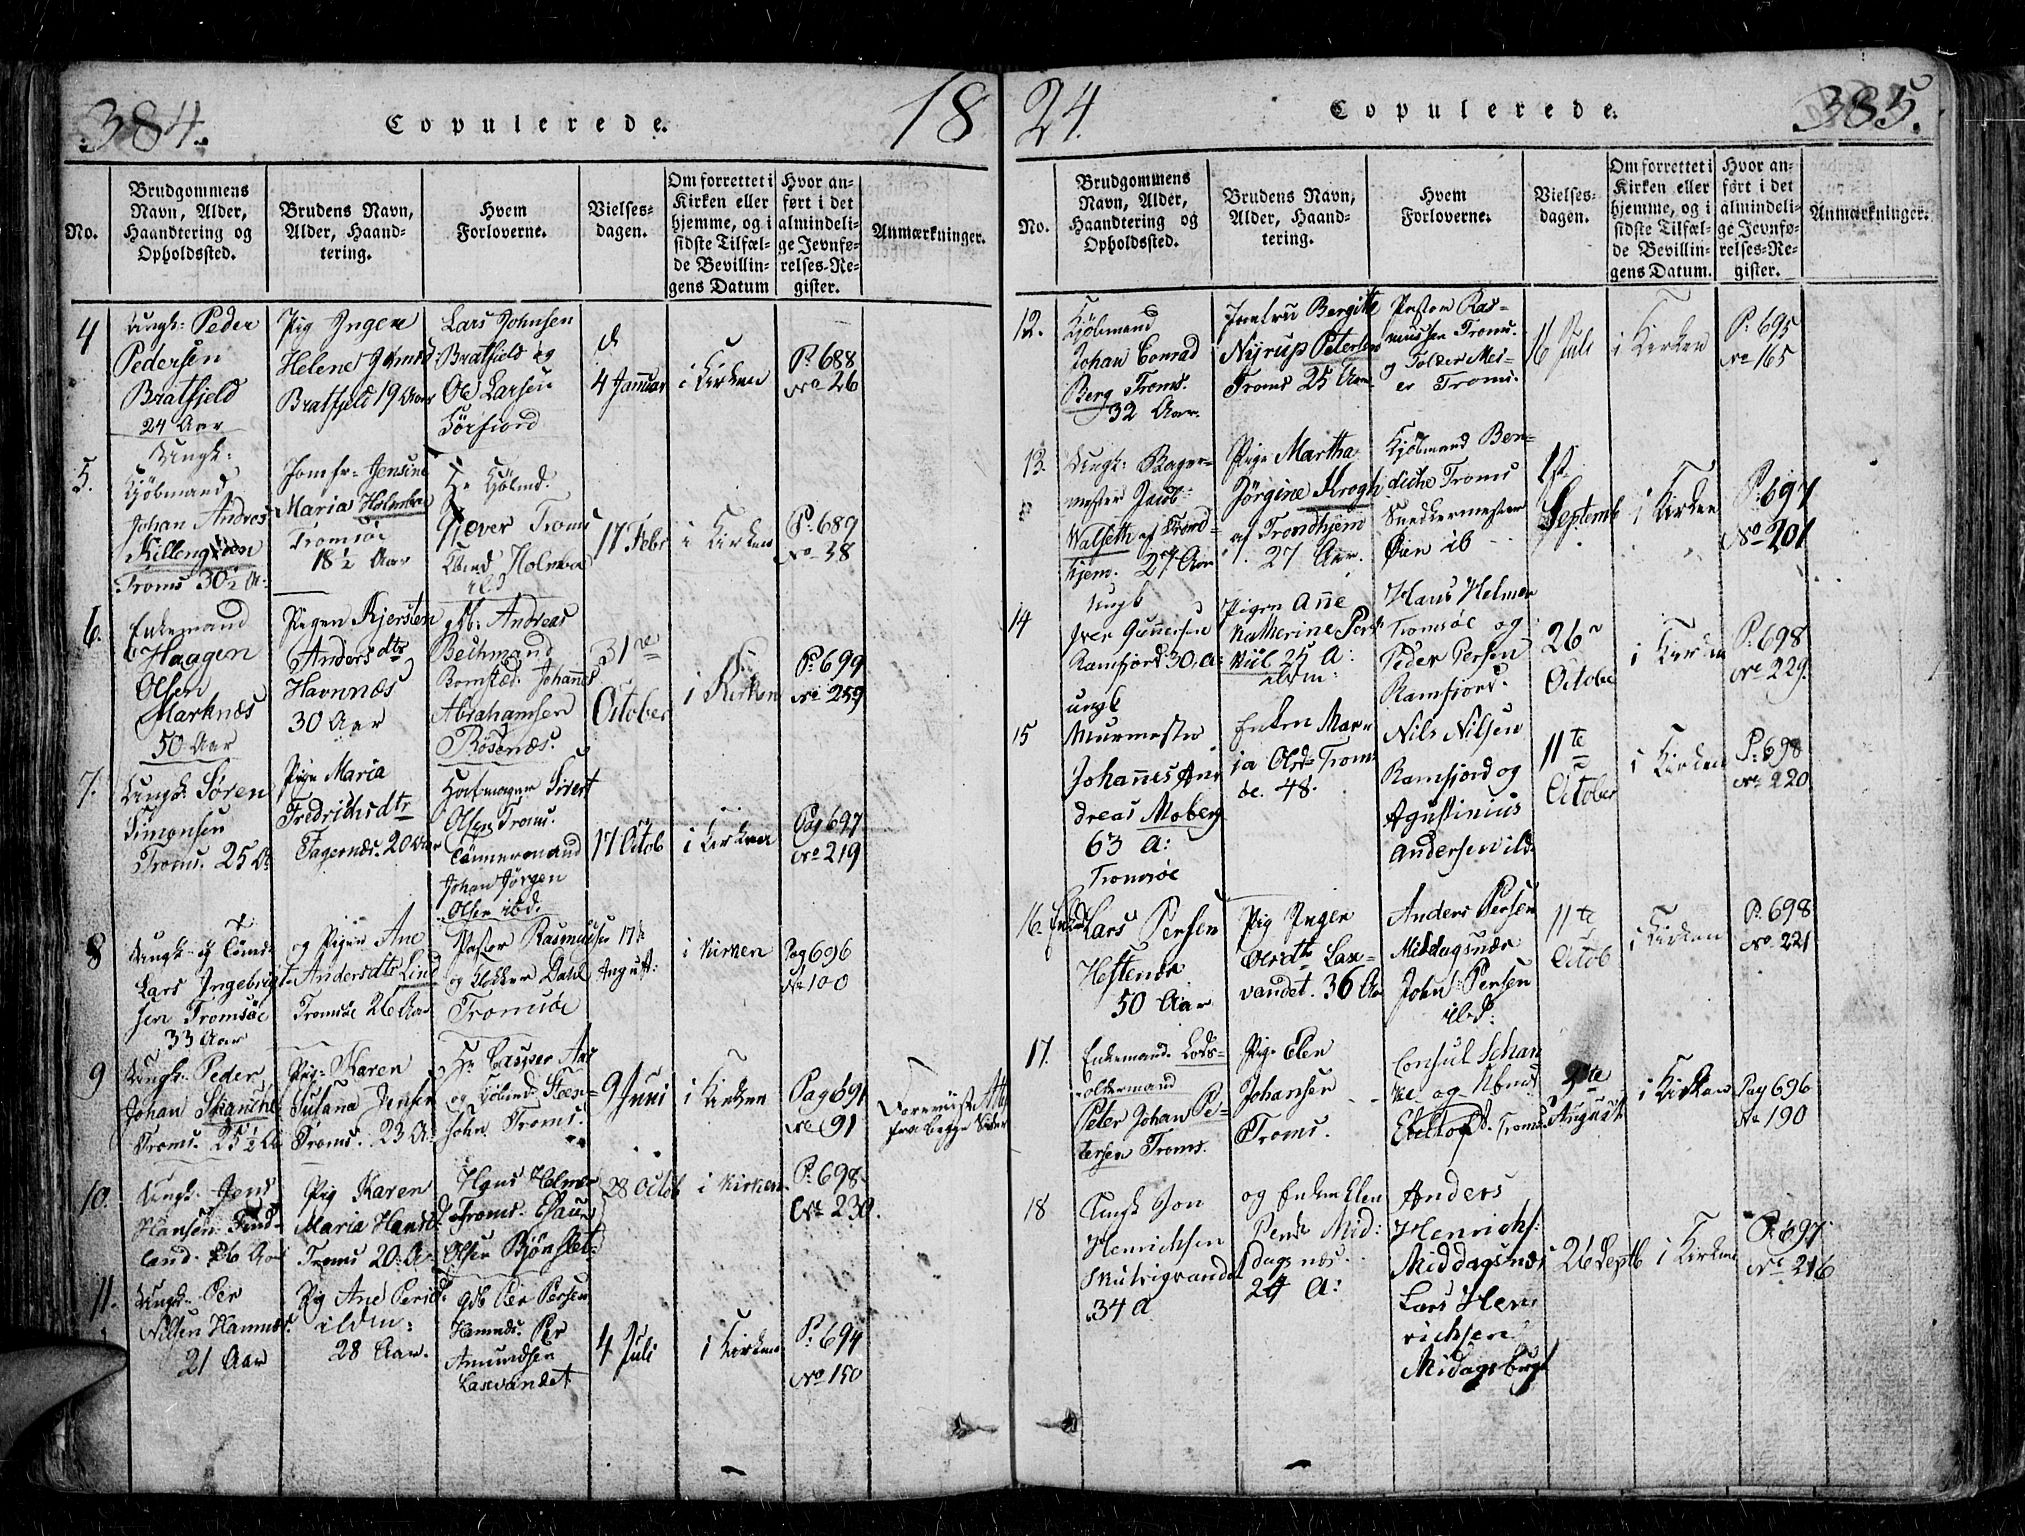 384.
Copulerede.
18
No.
Brudgommens
Navn, Alder,
Haandtering og
Opholdssted.
Brudens Navn,
Alder, Haand-
tering.
Hvem
Forloverne.
Vielses-
dagen.
Om forrettet i
Kirken eller
hjemme, og i
sidste Tilfæl-
de Bevillin-
gens Datum
Hvor an-
ført i det
almindeli-
ge Jevnfø-
relses-Re-
gister.
Anmærkninger.
4
Ungk: Peder
Pedersen
Bratfjeld
24 Aar
Pig Inger
Helene
Bratfjeld 19 Aar
Lars Johnsen
Bratfjeld og
Ole Larsen
Sörfiord
4 Januar
i Kirken
P. 688
No 26
5.
Ungk:
Kjöbmand
Johan Andreas
Killengreen
Troms 30½ A.
Jomfr. Jensine
Maria Holmboe
Tromsöe
18½ Aar
Hr Kjöbmd.
Troms
Holmboe
ibd
17 Febr
i Kirken
P. 689
No 38
6.
Enkemand
Haagen
Olsen
Marknæs
50 Aar
Pigen Kjersten
Andersdtr
Havnnæs
30 Aar
Andreas
Bechmand
Johannes
Abrahamsen
Rösenæs.
31te
October
i Kirken
P. 699
No 259
7.
Ungk. Sören
Simonsen
Troms. 25 A.
Pige Maria
Fredrichsdtr
Fagernæs. 20 Aar
Sivert
Olsen Troms.
Tömmermand
Johan Jörgen
Olsen ibd.
17 Octob
i Kirken
Pag 697
No 219
8
Ungk. og
Lars Ingebrigt-
sen Tromsöe
33 Aar
og Pigen Ane
Andersdtr Lind
Tromsöe 26 Aar
Pastor Rasmussen
og Klokker Dahl
Tromsöe
17de
August:
i Kirken
Pag 696
No 190
9
Ungk. Peder
Johan Skanche
Troms. 25½ Aar
Pig. Karen
Susana Jensen
Troms. 23 A.
Hr Casper
og Kjöbmd. Steen-
john Troms.
9 Juni
i Kirken
Pag 691
No 91
Foreviiste Att
fra begge Sider
10.
Ungk. Jens
Hansen Find-
land. 26 Aar
Pig Karen
Maria Hansd.
Troms 20 A.
Hans Helmer
Troms. Esau
Olsen
28 Octob
i Kirken
P. 698
No 230.
11.
Ungk. Per
Nilsen Hamnæs.
21 Aar
Pig Ane Persd.
28 Aar.
Per Persen
Hamnæs. Per
Amundsen
Laxevandet
4 Juli
i Kirken
P. 694
No 150
24.
Copulerede.
385.
No.
Brudgommens
Navn, Alder,
Haandtering og
Opholdssted.
Brudens Navn,
Alder, Haand-
tering.
Hvem
Forloverne.
Vielses-
dagen.
Om forrettet i
Kirken eller
hjemme, og i
sidste Tilfæl-
de Bevillin-
gens Datum.
Hvor an-
ført i det
almindeli-
ge Jevnfø-
relses-Re-
gister.
Anmærkninger.
12.
Kjöbmand
Johan Conrad
Berg Troms.
32 Aar.
Jomfru Bergitte
Nyrup Petersen
Troms 25 Aar
Pastor Ras-
mussen Troms.
og Tolder Mei-
er Troms.
16 Juli
i Kirken
P. 695
No 165
13.
Ungk: Bager-
mester Jacob
Walseth af Trond-
hjem. 27 Aar
Pige Martha
Jörgine Krogh
af Trondhjem
27 Aar.
Kjöbmand Ben-
diche Troms
Snedkermester
Öien ib
1st
Septemb
i Kirken
P. 697
No 201
14
Ungk
Iver Gunersen
Ramfjord 30 A:
Pigen Ane
Katherine Pers.
25 A:
Hans Helmer
Tromsöe og
Peder Persen
Ramfjord.
26
October
i Kirken
P. 698
No 229.
15
ungk
Muurmester
Johanes An-
dreas Moberg
63 A:
Tromsöe
Enken Mar-
ia Olsd. Troms-
öe. 48.
Nils Nilsen
Ramfjord og
Agustinius
Andersen ibd.
11te
October
i Kirken
P. 698
No 220
16.
Lars Persen
Hestenes
50 Aar
Pig Inger
Olsdtr Lax-
vandet. 36 Aar
Anders Persen
Middagsnæs
John Persen
ibd.
11te
Octob
i Kirken
P. 698
No. 221
17.
Enkemand Lods-
oldermand
Peter Johan Pe-
tersen Troms.
Pige Elen
Johansen
Troms.
Consul Schan-
ke og
Ebeltoft. Troms
August
i Kirken
Pag 696
No 190
18
Ungk Jon
Henrichsen
34 A
og Enken Elen
Persd. Mid-
dagsnæs.
24 A:
Anders
Henrichs.
Middagsnæs
Lars Hen-
richsen
26 Septb
i Kirken
P. 697
No. 216